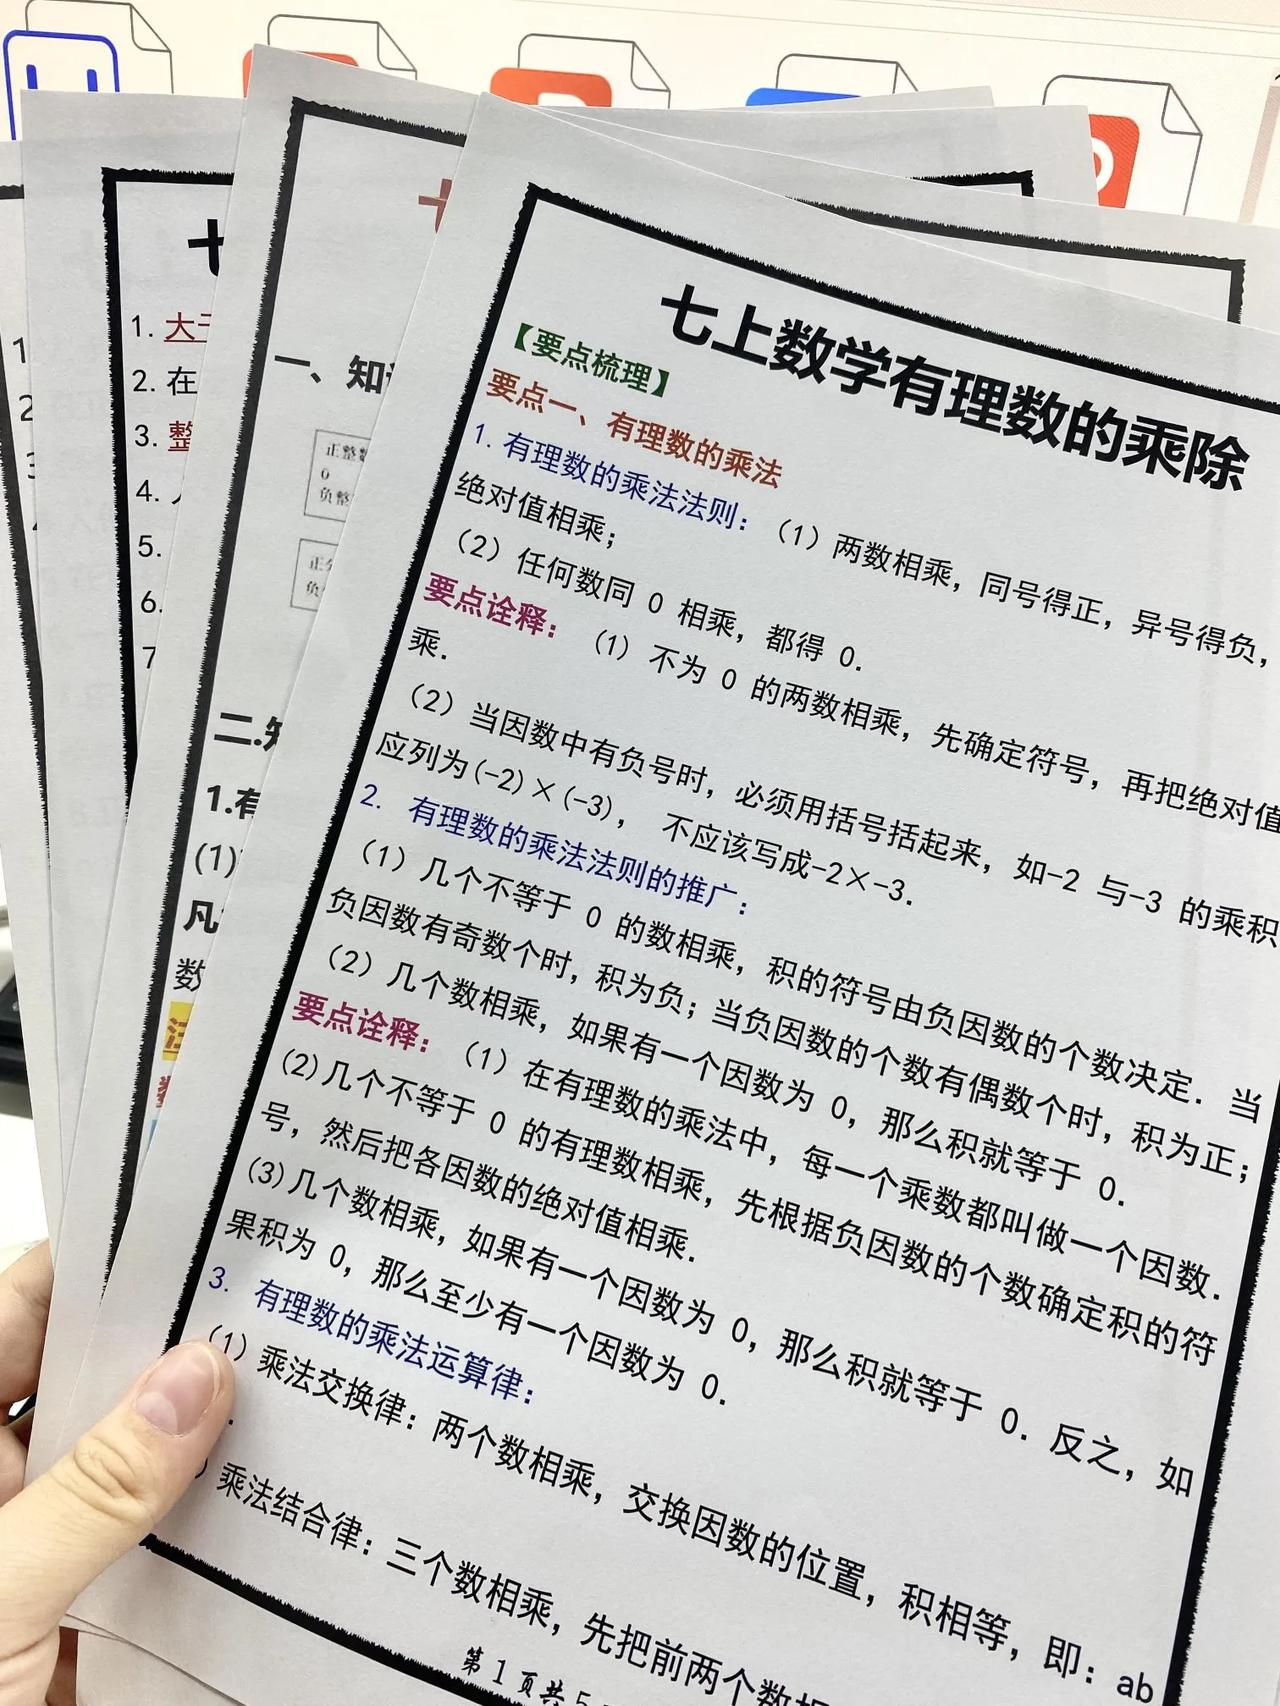 七上数学有理数的乘除
【要点梳理】
要点一、有理数的乘法
1. 有理数的乘法法则：（1）两数相乘，同号得正，异号得负，
绝对值相乘；
（2）任何数同 0 相乘，都得 0.
要点诠释：（1）不为 0 的两数相乘，先确定符号，再把绝对值
乘.
（2）当因数中有负号时，必须用括号括起来，如-2 与-3 的乘积
应列为(-2)×(-3)， 不应该写成-2×-3.
2. 有理数的乘法法则的推广：
（1）几个不等于 0 的数相乘，积的符号由负因数的个数决定．当
负因数有奇数个时，积为负；当负因数的个数有偶数个时，积为正；
（2）几个数相乘，如果有一个因数为 0，那么积就等于 0.
要点诠释：（1）在有理数的乘法中，每一个乘数都叫做一个因数.
(2)几个不等于 0 的有理数相乘，先根据负因数的个数确定积的符
号，然后把各因数的绝对值相乘.
(3)几个数相乘，如果有一个因数为 0，那么积就等于 0. 反之，如
果积为 0，那么至少有一个因数为 0.
3. 有理数的乘法运算律：
（1）乘法交换律：两个数相乘，交换因数的位置，积相等，即：ab
乘法结合律：三个数相乘，先把前两个数相
第 1 页共 5
一、知
正整数
0
负整
正分
负
二.知
1.有
(1)
凡
数
七
1. 大于
2. 在
3. 整
4.
5.
6.
7
1
2
3